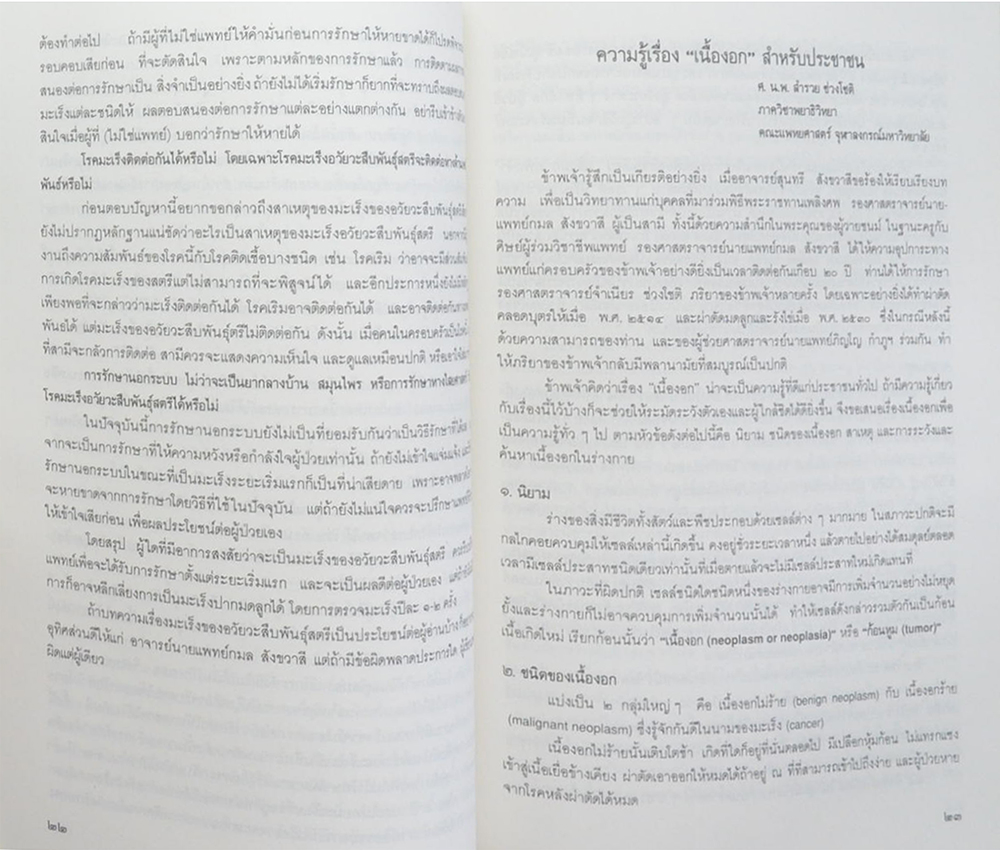 ต้องทำต่อไป ถ้ามีผู้ที่ไม่ใช่แพทย์ให้คำมั่นก่อนการรักษาให้หายขาดได้ก็โปรด
รอบคอบเสียก่อน ที่จะตัดสินใจ เพราะตามหลักของการรักษาแล้ว การติดตาม
สนองต่อการรักษาเป็น สิ่งจำเป็นอย่างยิ่ง ถ้ายังไม่ได้เริ่มรักษาก็ยากที่จะทราบถึง
มะเร็งแต่ละชนิดให้ ผลตอบสนองต่อการรักษาแต่ละอย่างแตกต่างกัน อย่ารีบเข้า
สินใจเมื่อผู้ที่ (ไม่ใช่แพทย์) บอกว่ารักษาให้หายได้
โรคมะเร็งติดต่อกันได้หรือไม่ โดยเฉพาะโรคมะเร็งอวัยวะสืบพันธุ์สตรีจะติดต่อทาง
พันธ์หรือไม่
ก่อนตอบปัญหานี้อยากขอกล่าวถึงสาเหตุของมะเร็งของอวัยวะสืบพันธุ์สตรี
ยังไม่ปรากฏหลักฐานแน่ชัดว่าอะไรเป็นสาเหตุของมะเร็งอวัยวะสืบพันธุ์สตรี
งานถึงความสัมพันธ์ของโรคนี้กับโรคติดเชื้อบางชนิด เช่น โรคเริม ว่าอาจจะมี
การเกิดโรคมะเร็งของสตรีแต่ไม่สามารถที่จะพิสูจน์ได้ และอีกประการหนึ่งยังไม่มี
เพียงพอที่จะกล่าวว่ามะเร็งติดต่อกันได้ โรคเริมอาจติดต่อกันได้ และอาจติดต่อกัน
พันธ์ได้ แต่มะเร็งของอวัยวะสืบพันธุ์ตรีไม่ติดต่อกัน ดังนั้น เมื่อคนในครอบครัวเป็น
ที่สามีจะกลัวการติดต่อ สามีควรจะแสดงความเห็นใจ และดูแลเหมือนปกติ
การรักษานอกระบบ ไม่ว่าจะเป็นยากลางบ้าน สมุนไพร หรือการรักษาทางไสยศาสตร์
โรคมะเร็งอวัยวะสืบพันธุ์สตรีได้หรือไม่
ในปัจจุบันนี้การรักษานอกระบบยังไม่เป็นที่ยอมรับกันว่าเป็นวิธีรักษาที่
จากจะเป็นการรักษาที่ให้ความหวังหรือกำลังใจผู้ป่วยเท่านั้น ถ้ายังไม่เข้าใจแจ่มแจ้ง
รักษานอกระบบในขณะที่เป็นมะเร็งระยะเริ่มแรกก็เป็นที่น่าเสียดาย เพราะอาจพลาด
จะหายขาดจากการรักษาโดยวิธีที่ใช้ในปัจจุบัน แต่ถ้ายังไม่แน่ใจควรจะปรึกษาแพทย์
ให้เข้าใจเสียก่อน เพื่อผลประโยชน์ต่อผู้ป่วยเอง
โดยสรุป ผู้ใดที่มีอาการสงสัยว่าจะเป็นมะเร็งของอวัยวะสืบพันธุ์สตรี
แพทย์เพื่อจะได้รับการรักษาตั้งแต่ระยะเริ่มแรก และจะเป็นผลดีต่อผู้ป่วยเอง
การก็อาจหลีกเลี่ยงการเป็นมะเร็งปากมดลูกได้ โดยการตรวจมะเร็งปีละ ๑-๒ ครั้ง
ถ้าบทความเรื่องมะเร็งของอวัยวะสืบพันธุ์สตรีเป็นประโยชน์ต่อผู้อ่านบ้าง
อุทิศส่วนดีให้แก่ อาจารย์นายแพทย์กมล สังขวาสี แต่ถ้ามีข้อผิดพลาดประการใด
ผิดแต่ผู้เดียว
๒๒
ความรู้เรื่อง "เนื้องอก" สำหรับประชาชน
ศ. น.พ. สำรวย ช่วงโชติ
ภาควิชาพยาธิวิทยา
คณะแพทยศาสตร์ จุฬาลงกรณ์มหาวิทยาลัย
ข้าพเจ้ารู้สึกเป็นเกียรติอย่างยิ่ง เมื่ออาจารย์สุนทรี สังขวาสีขอร้องให้เรียบเรียงบท
ความ เพื่อเป็นวิทยาทานแก่บุคคลที่มาร่วมพิธีพระราชทานเพลิงศพ รองศาสตราจารย์นาย-
แพทย์กมล สังขวาสี ผู้เป็นสามี ทั้งนี้ด้วยความสำนึกในพระคุณของผู้วายชนม์ ในฐานะครูกับ
ศิษย์ผู้ร่วมวิชาชีพแพทย์ รองศาสตราจารย์นายแพทย์กมล สังขวาสี ได้ให้ความอุปการะทาง
แพทย์แก่ครอบครัวของข้าพเจ้าอย่างดียิ่งเป็นเวลาติดต่อกันเกือบ ๒๐ ปี ท่านได้ให้การรักษา
รองศาสตราจารย์จำเนียร ช่วงโชติ ภริยาของข้าพเจ้าหลายครั้ง โดยเฉพาะอย่างยิ่งได้ทำผ่าตัด
คลอดบุตรให้เมื่อ พ.ศ. ๒๕๑๔ และผ่าตัดมดลูกและรังไข่เมื่อ พ.ศ. ๒๕๓๐ ซึ่งในกรณีหลังนี้
ด้วยความสามารถของท่าน และของผู้ช่วยศาสตราจารย์นายแพทย์ภิญโญ กำภูฯ ร่วมกัน ทำ
ให้ภริยาของข้าพเจ้ากลับมีพลานามัยที่สมบูรณ์เป็นปกติ
ข้าพเจ้าคิดว่าเรื่อง "เนื้องอก" น่าจะเป็นความรู้ที่ดีแก่ประชาชนทั่วไป ถ้ามีความรู้เกี่ยว
กับเรื่องนี้ไว้บ้างก็จะช่วยให้ระมัดระวังตัวเองและผู้ใกล้ชิดได้ดียิ่งขึ้น จึงขอเสนอเรื่องเนื้องอกเพื่อ
เป็นความรู้ทั่ว ๆ ไป ตามหัวข้อดังต่อไปนี้คือ นิยาม ชนิดของเนื้องอก สาเหตุ และการระวังและ
ค้นหาเนื้องอกในร่างกาย
๑. นิยาม
ร่างของสิ่งมีชีวิตทั้งสัตว์และพืชประกอบด้วยเซลล์ต่าง ๆ มากมาย ในสภาวะปกติจะมี
กลไกคอยควบคุมให้เซลล์เหล่านี้เกิดขึ้น คงอยู่ชั่วระยะเวลาหนึ่ง แล้วตายไปอย่างได้สมดุลย์ตลอด
เวลามีเซลล์ประสาทชนิดเดียวเท่านั้นที่เมื่อตายแล้วจะไม่มีเซลล์ประสาทใหม่เกิดแทนที่
ในภาวะที่ผิดปกติ เซลล์ชนิดใดชนิดหนึ่งของร่างกายอาจมีการเพิ่มจำนวนอย่างไม่หยุด
ยั้งและร่างกายก็ไม่อาจควบคุมการเพิ่มจำนวนนั้นได้ ทำให้เซลล์ดังกล่าวรวมตัวกันเป็นก้อน
เนื้อเกิดใหม่ เรียกก้อนนั้นว่า "เนื้องอก (neoplasm or neoplasia)" หรือ "ก้อนทูม (tumor)"
๒. ชนิดของเนื้องอก
แบ่งเป็น ๒ กลุ่มใหญ่ ๆ คือ เนื้องอกไม่ร้าย (benign neoplasm) กับ เนื้องอกร้าย
(malignant neoplasm) ซึ่งรู้จักกันดีในนามของมะเร็ง (cancer)
เนื้องอกไม่ร้ายนั้นเติบโตช้า เกิดที่ใดก็อยู่ที่นั่นตลอดไป มีเปลือกหุ้มก้อน ไม่แทรกแซง
เข้าสู่เนื้อเยื่อข้างเคียง ผ่าตัดเอาออกให้หมดได้ถ้าอยู่ ณ ที่ที่สามารถเข้าไปถึงง่าย และผู้ป่วยหาย
จากโรคหลังผ่าตัดได้หมด
๒๓